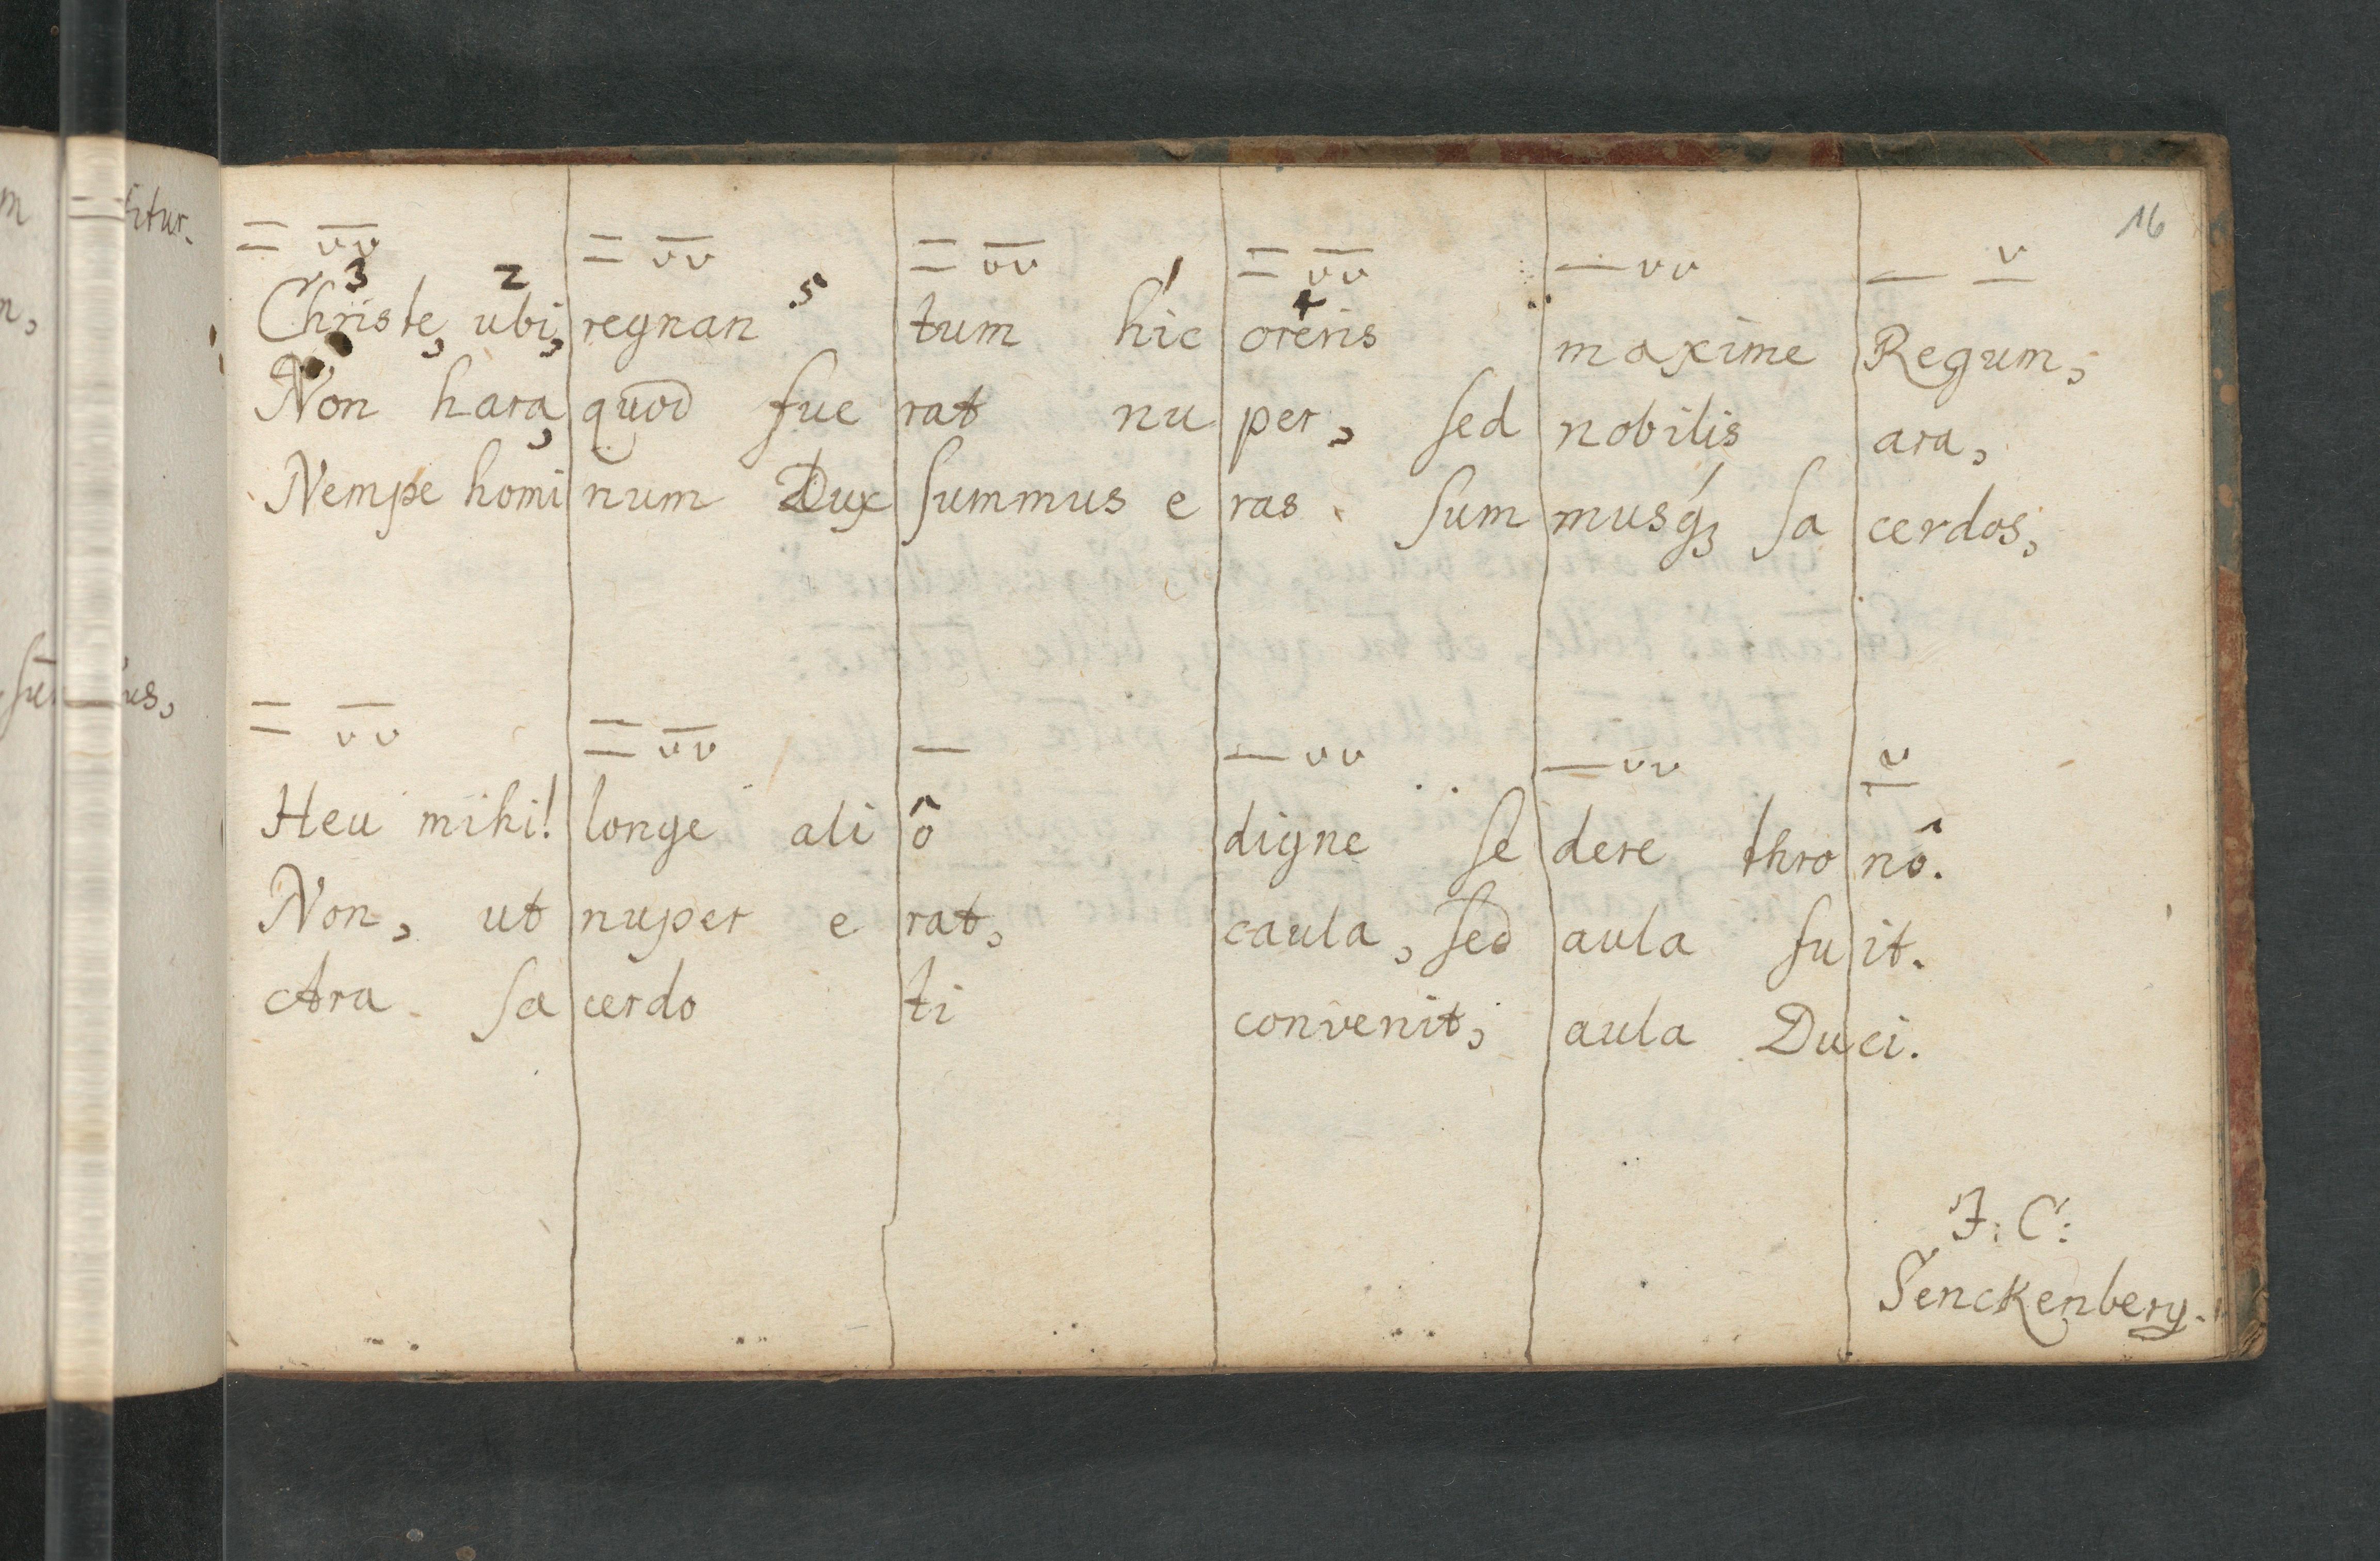 16
3 2 5 1 4
Christe, ubi, regnan tum hic oreris maxime Regum,
Non hara, quod fue rat nu per, sed nobilis ara,
Nempe homi num Dux summus e ras sum musq́ꝫ sa cerdos,
Heu mihi! longe ali ô digne se dere thro nô.
Non, ut nuper e rat, caula, sed aula fu it.
Ara sa cerdo ti convenit, aula Du ci.
J: C:
Senckenberg.
m
titur.
n,